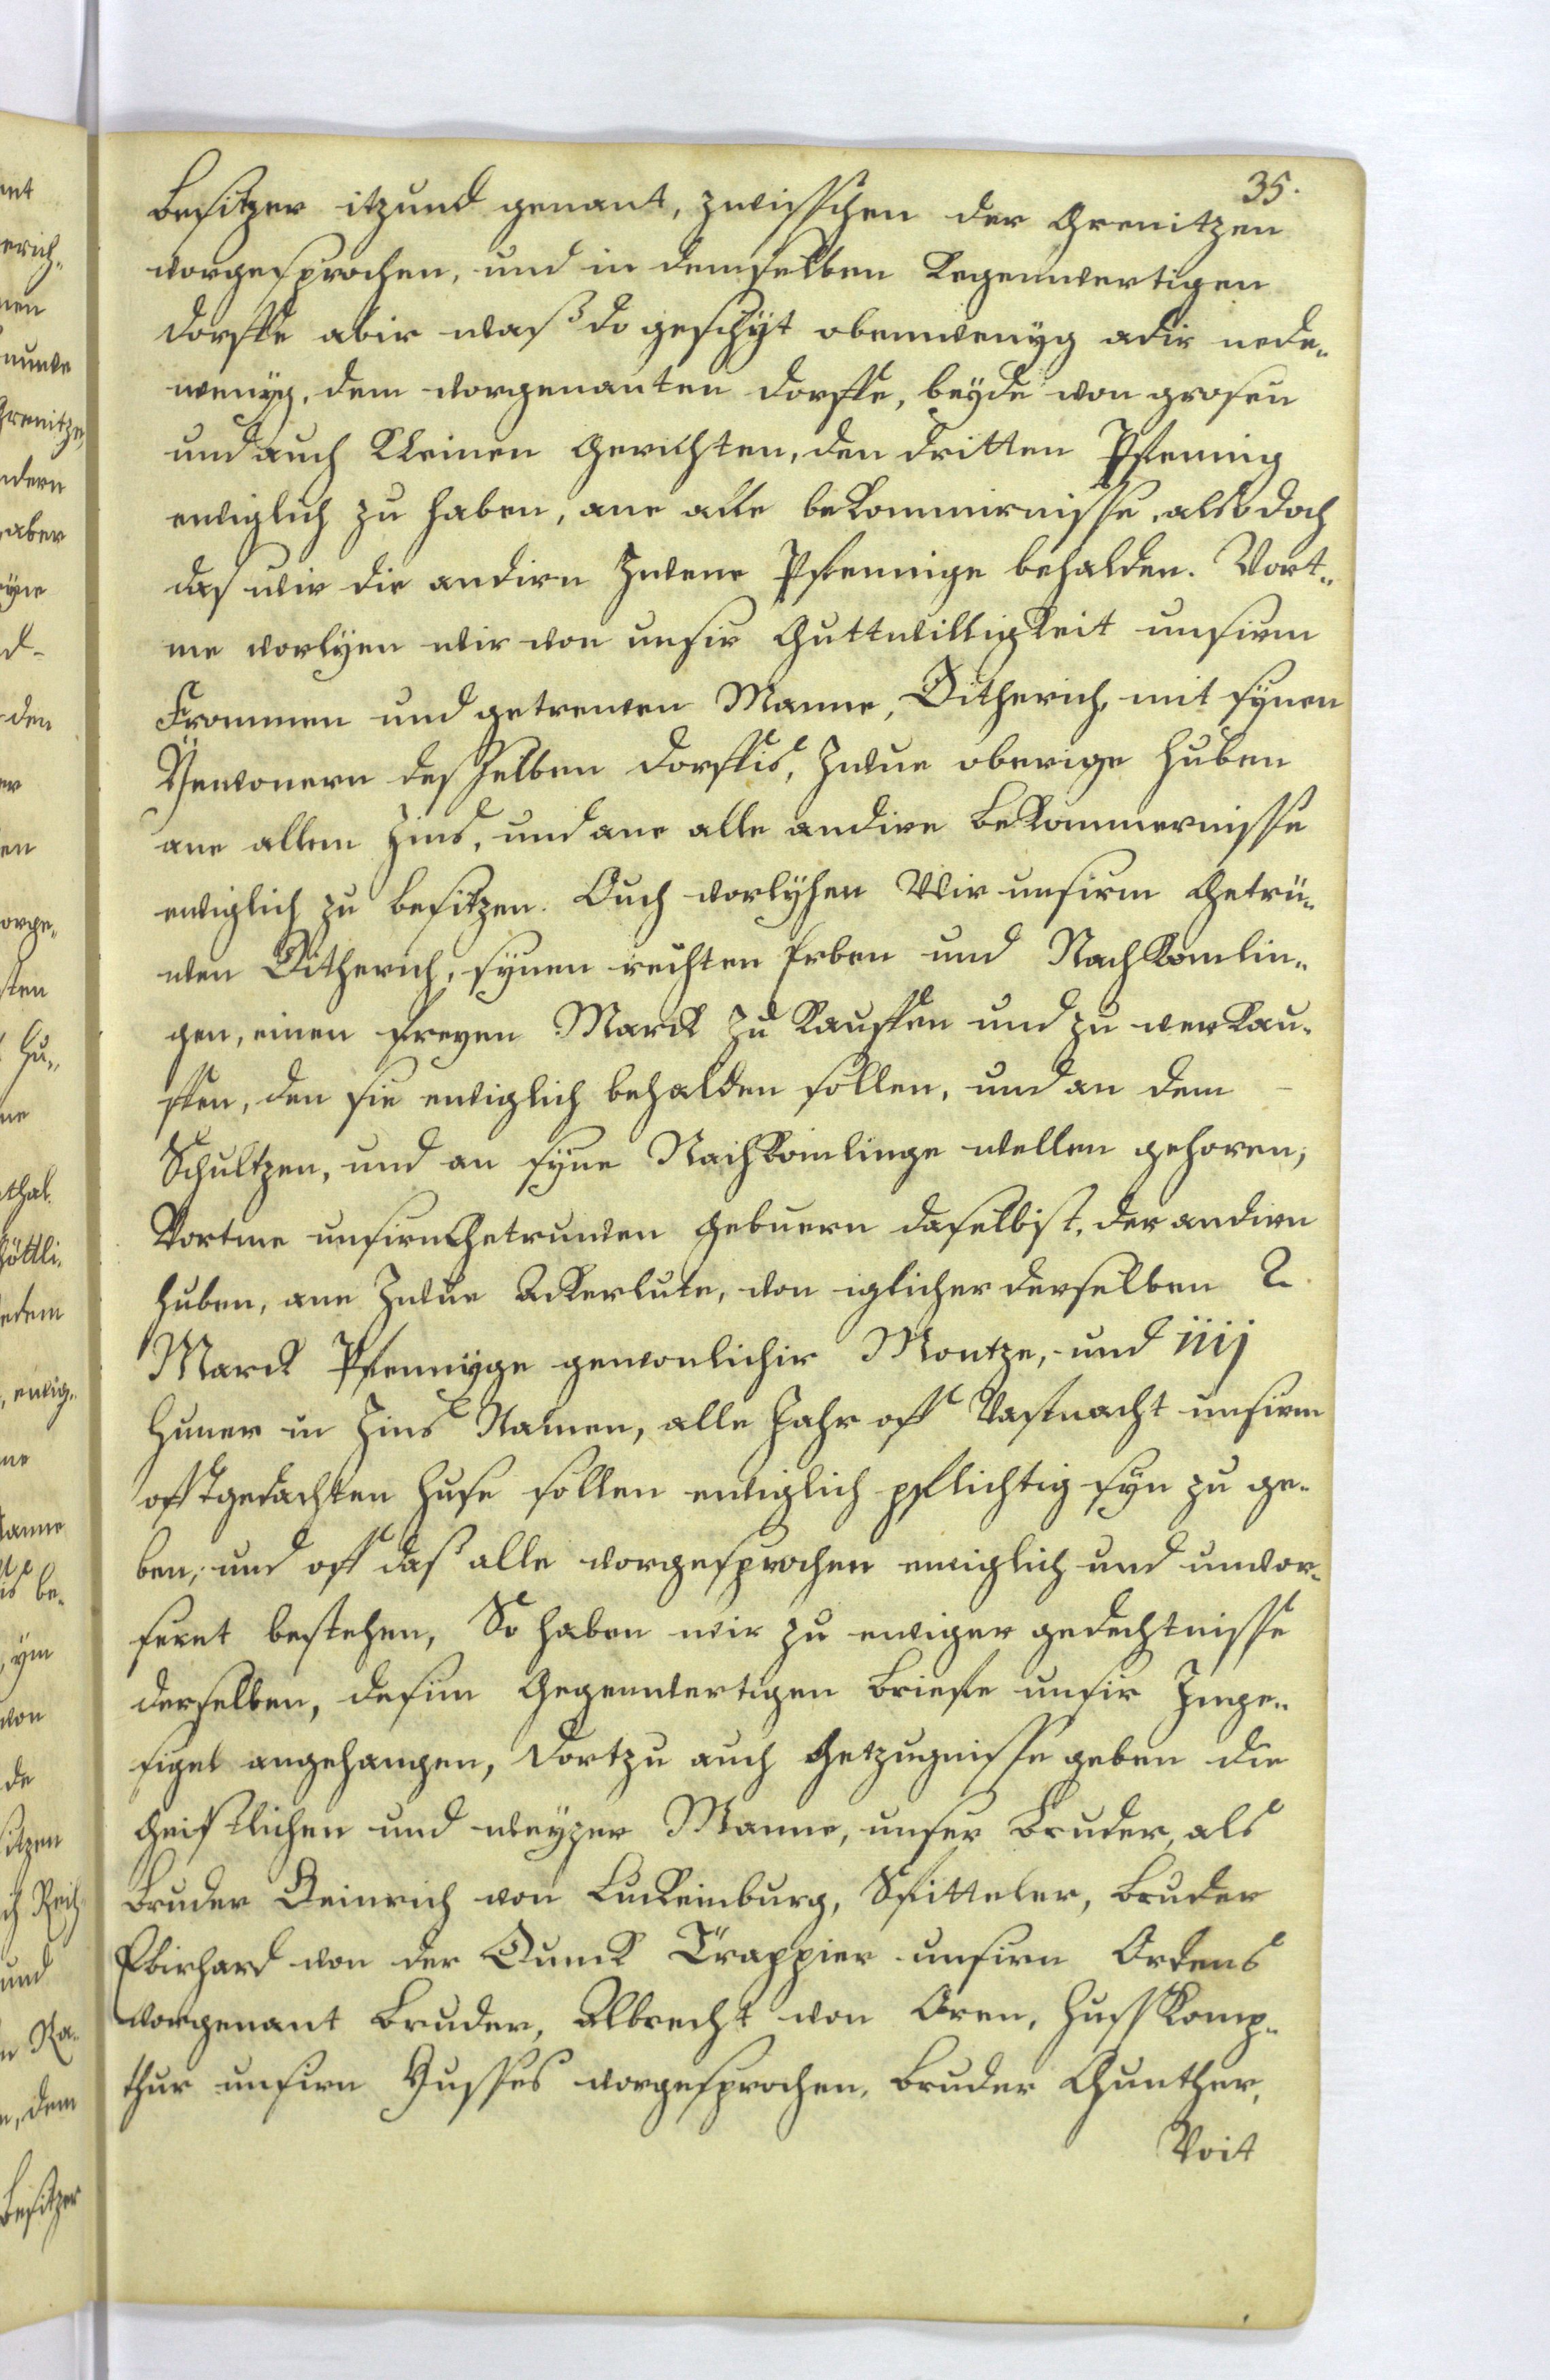 35.
Besitzer itzund genant, zwisschen der Grenitzen
vorgesprochen, und in demselben kegenwertigen
dorffe abir waß do geschyt obenwenyg adir nede„
wenyg, dem vorgenanten dorffe, beyde von grosen
und auch kleinen Gerichten, den dritten Pfennig
ewiglich zu haben, ane alle bekommirnisse, also doch
das wir die andirn Zwene Pfennige behalden. Vort„
me vorlyen wir von unsir Guttwilligkeit unsirm
Frommen und getrewen Manne, Ditherich, mit synen
Ynwonern desselben dorffis, Zwue oberige Huben
ane allem Zins, und ane alle andire bekommernisse
ewiglich zu besitzen. Ouch vorlyhen Wir unsirm Getrü„
wen Ditherich, synen rechten Erben und Nachkomlin„
gen, einen freyen Marck zu kauffen und zu verkau„
ffen, den sie ewiglich behalden sollen, und an dem
Schultzen, und an syne Nachkomlinge wellen gehoren,
Vortme unsirn Getruwen gebuern daselbist, der andirn
Huben, ane Zwue Ackerlute, von iglicher derselben 2
Marck Pfennyge gewonlichir Montze, und iiij
Huner in Zins Namen, alle Jahr off Vastnacht unsirm
offtgedachten Huse sollen ewiglich pflichtig syn zu ge„
ben, und off daß alle vorgesprochen ewiglich und unvor„
seret bestehen, So haben wir zu ewiger gedechtnisse
derselben, desim Gegenwertigen briefe unsir Inge„
sigel angehangen, Dortzu auch Getzugnisse geben die
Geistlichen und weyzer Manne, unser Bruder, als
Bruder Heinrich von Luckeinburg, Spitteler, Bruder
Ebirhard von der Dunck Trappier unsirn Ordens
vorgenant Bruder, Albrecht von Oren, Husskomp„
thur unsirn Husses vorgesprochen, Bruder Gunther,
Voit